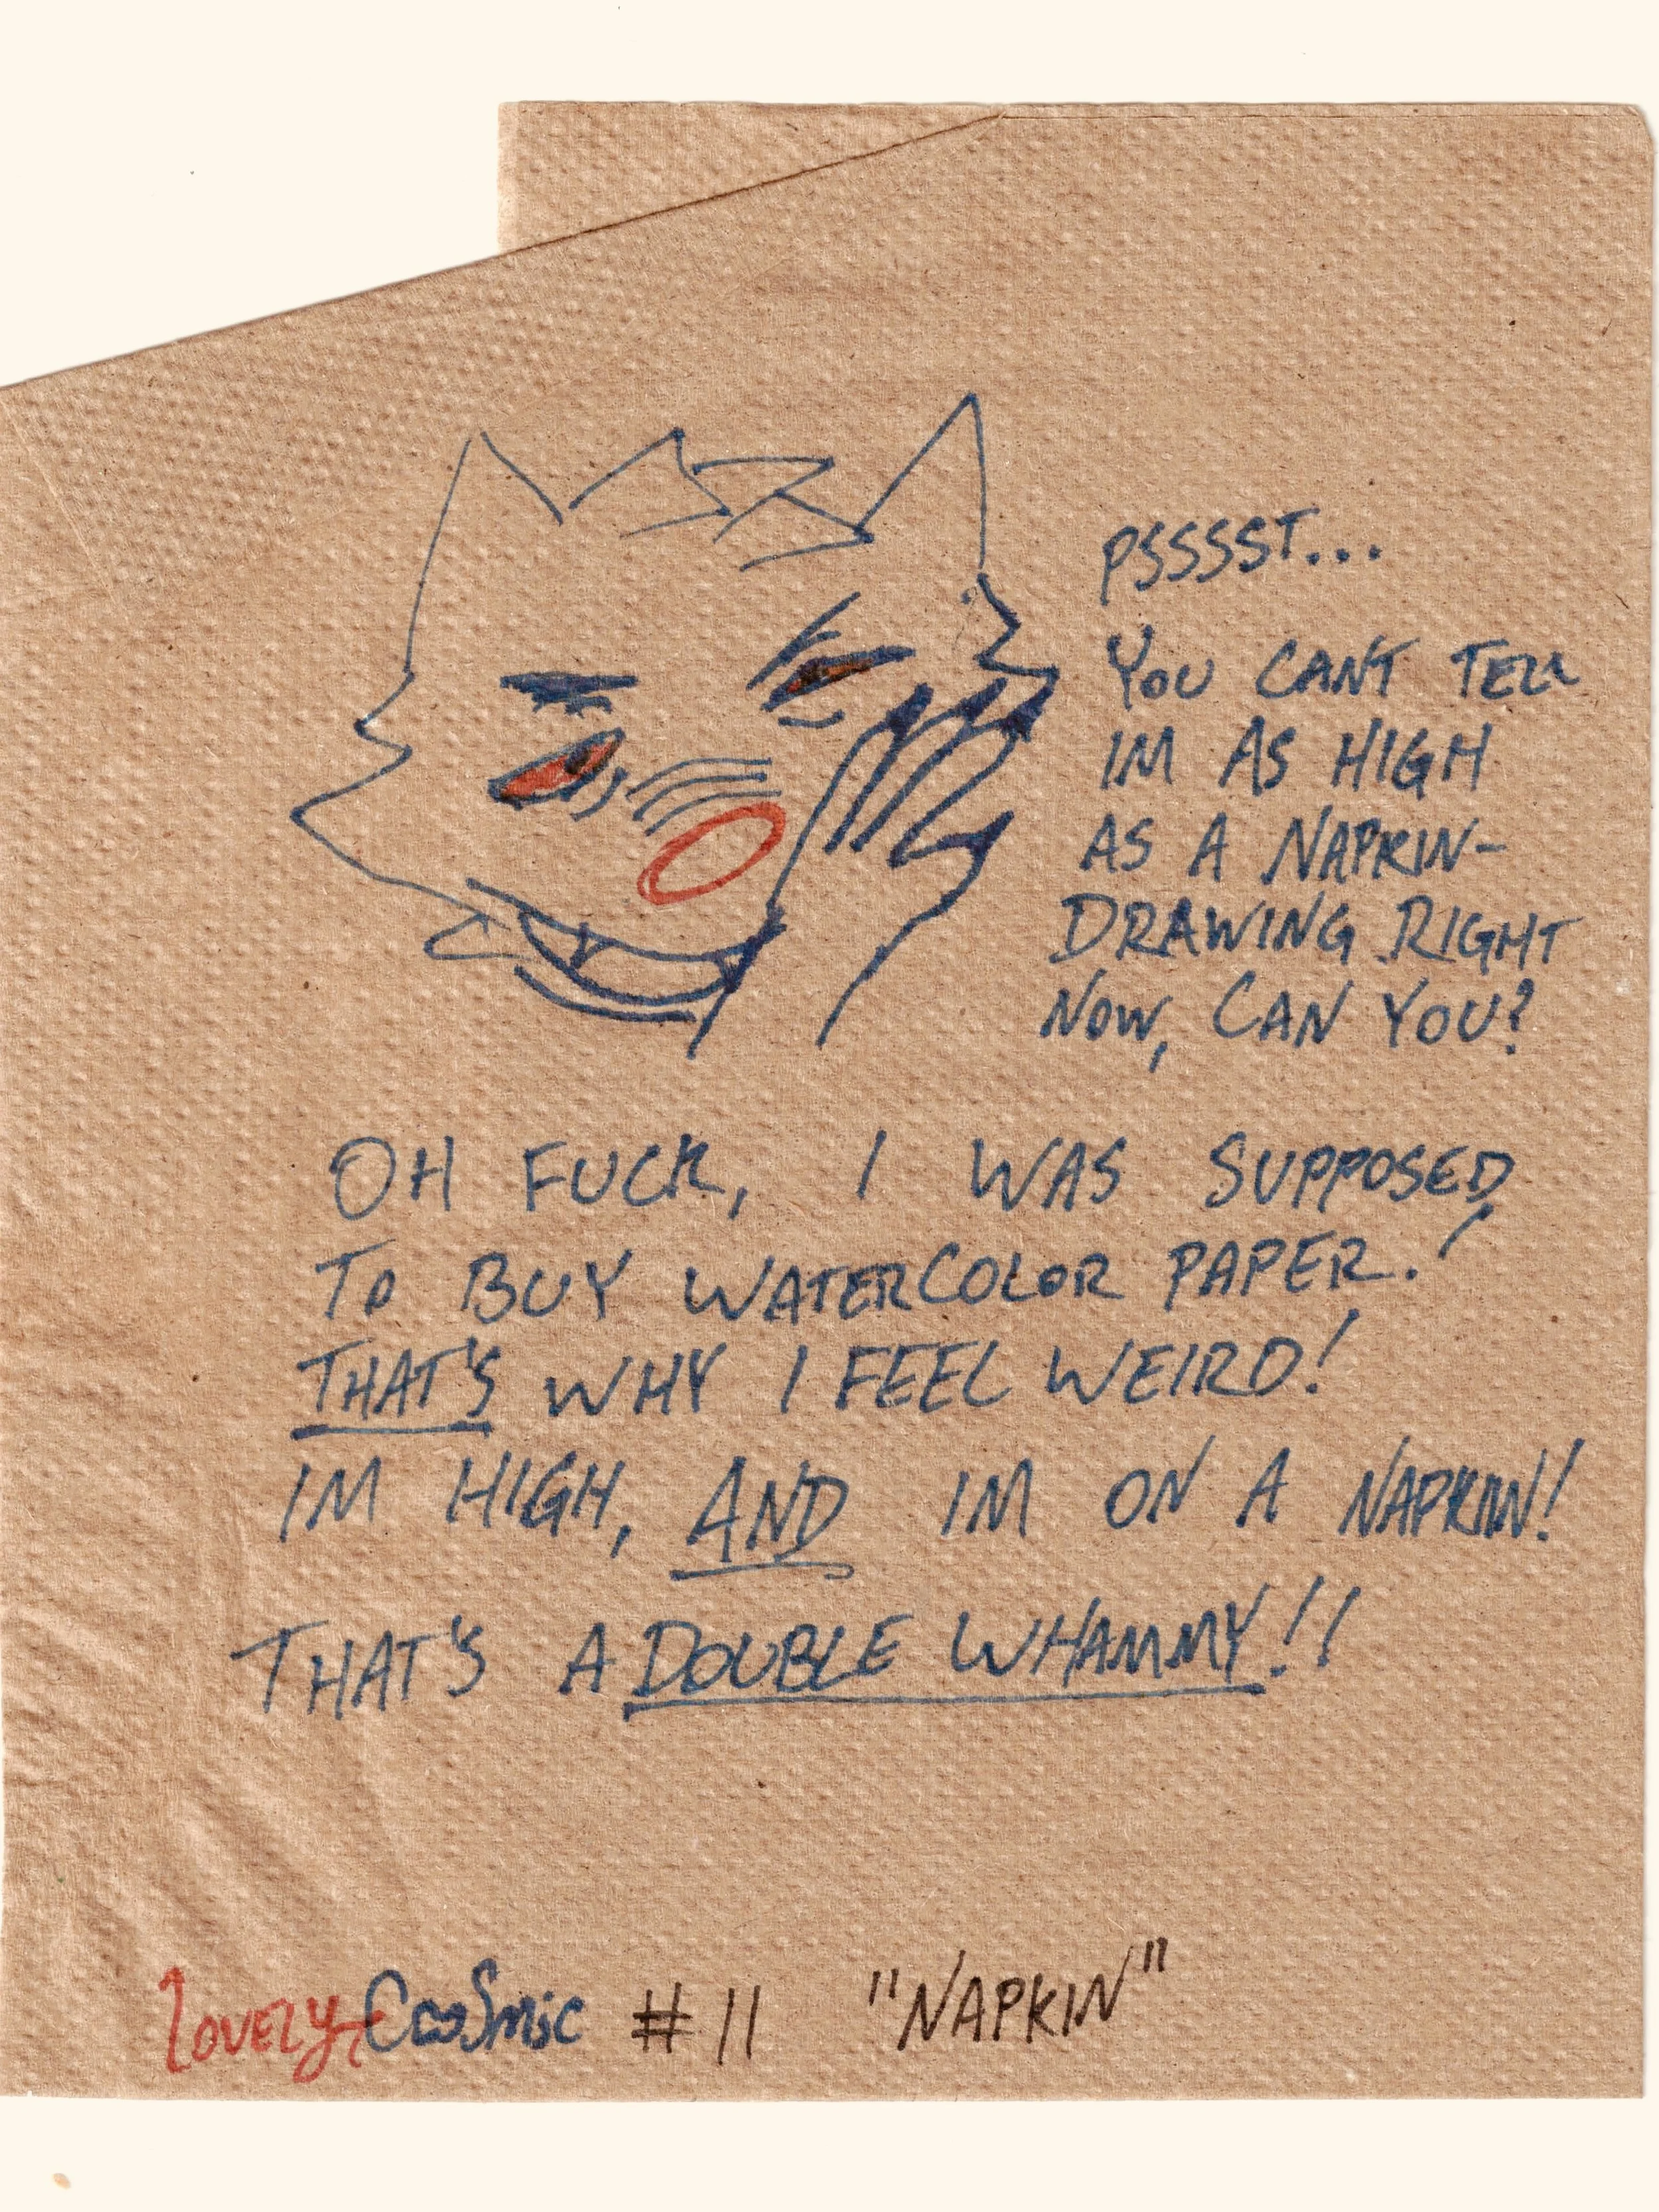 PSSSST...
YOU CANT TELL
IM AS HIGH
AS A NAPKIN-
DRAWING RIGHT
NOW, CAN YOU?
OH FUCK, I WAS SUPPOSED
TO BUY WATERCOLOR PAPER!
THAT'S WHY I FEEL WEIRD!
IM HIGH, AND IM ON A NAPKIN!
THAT'S A DOUBLE WHAMMY!!
LOVELY CooSmic #11 "NAPKIN"